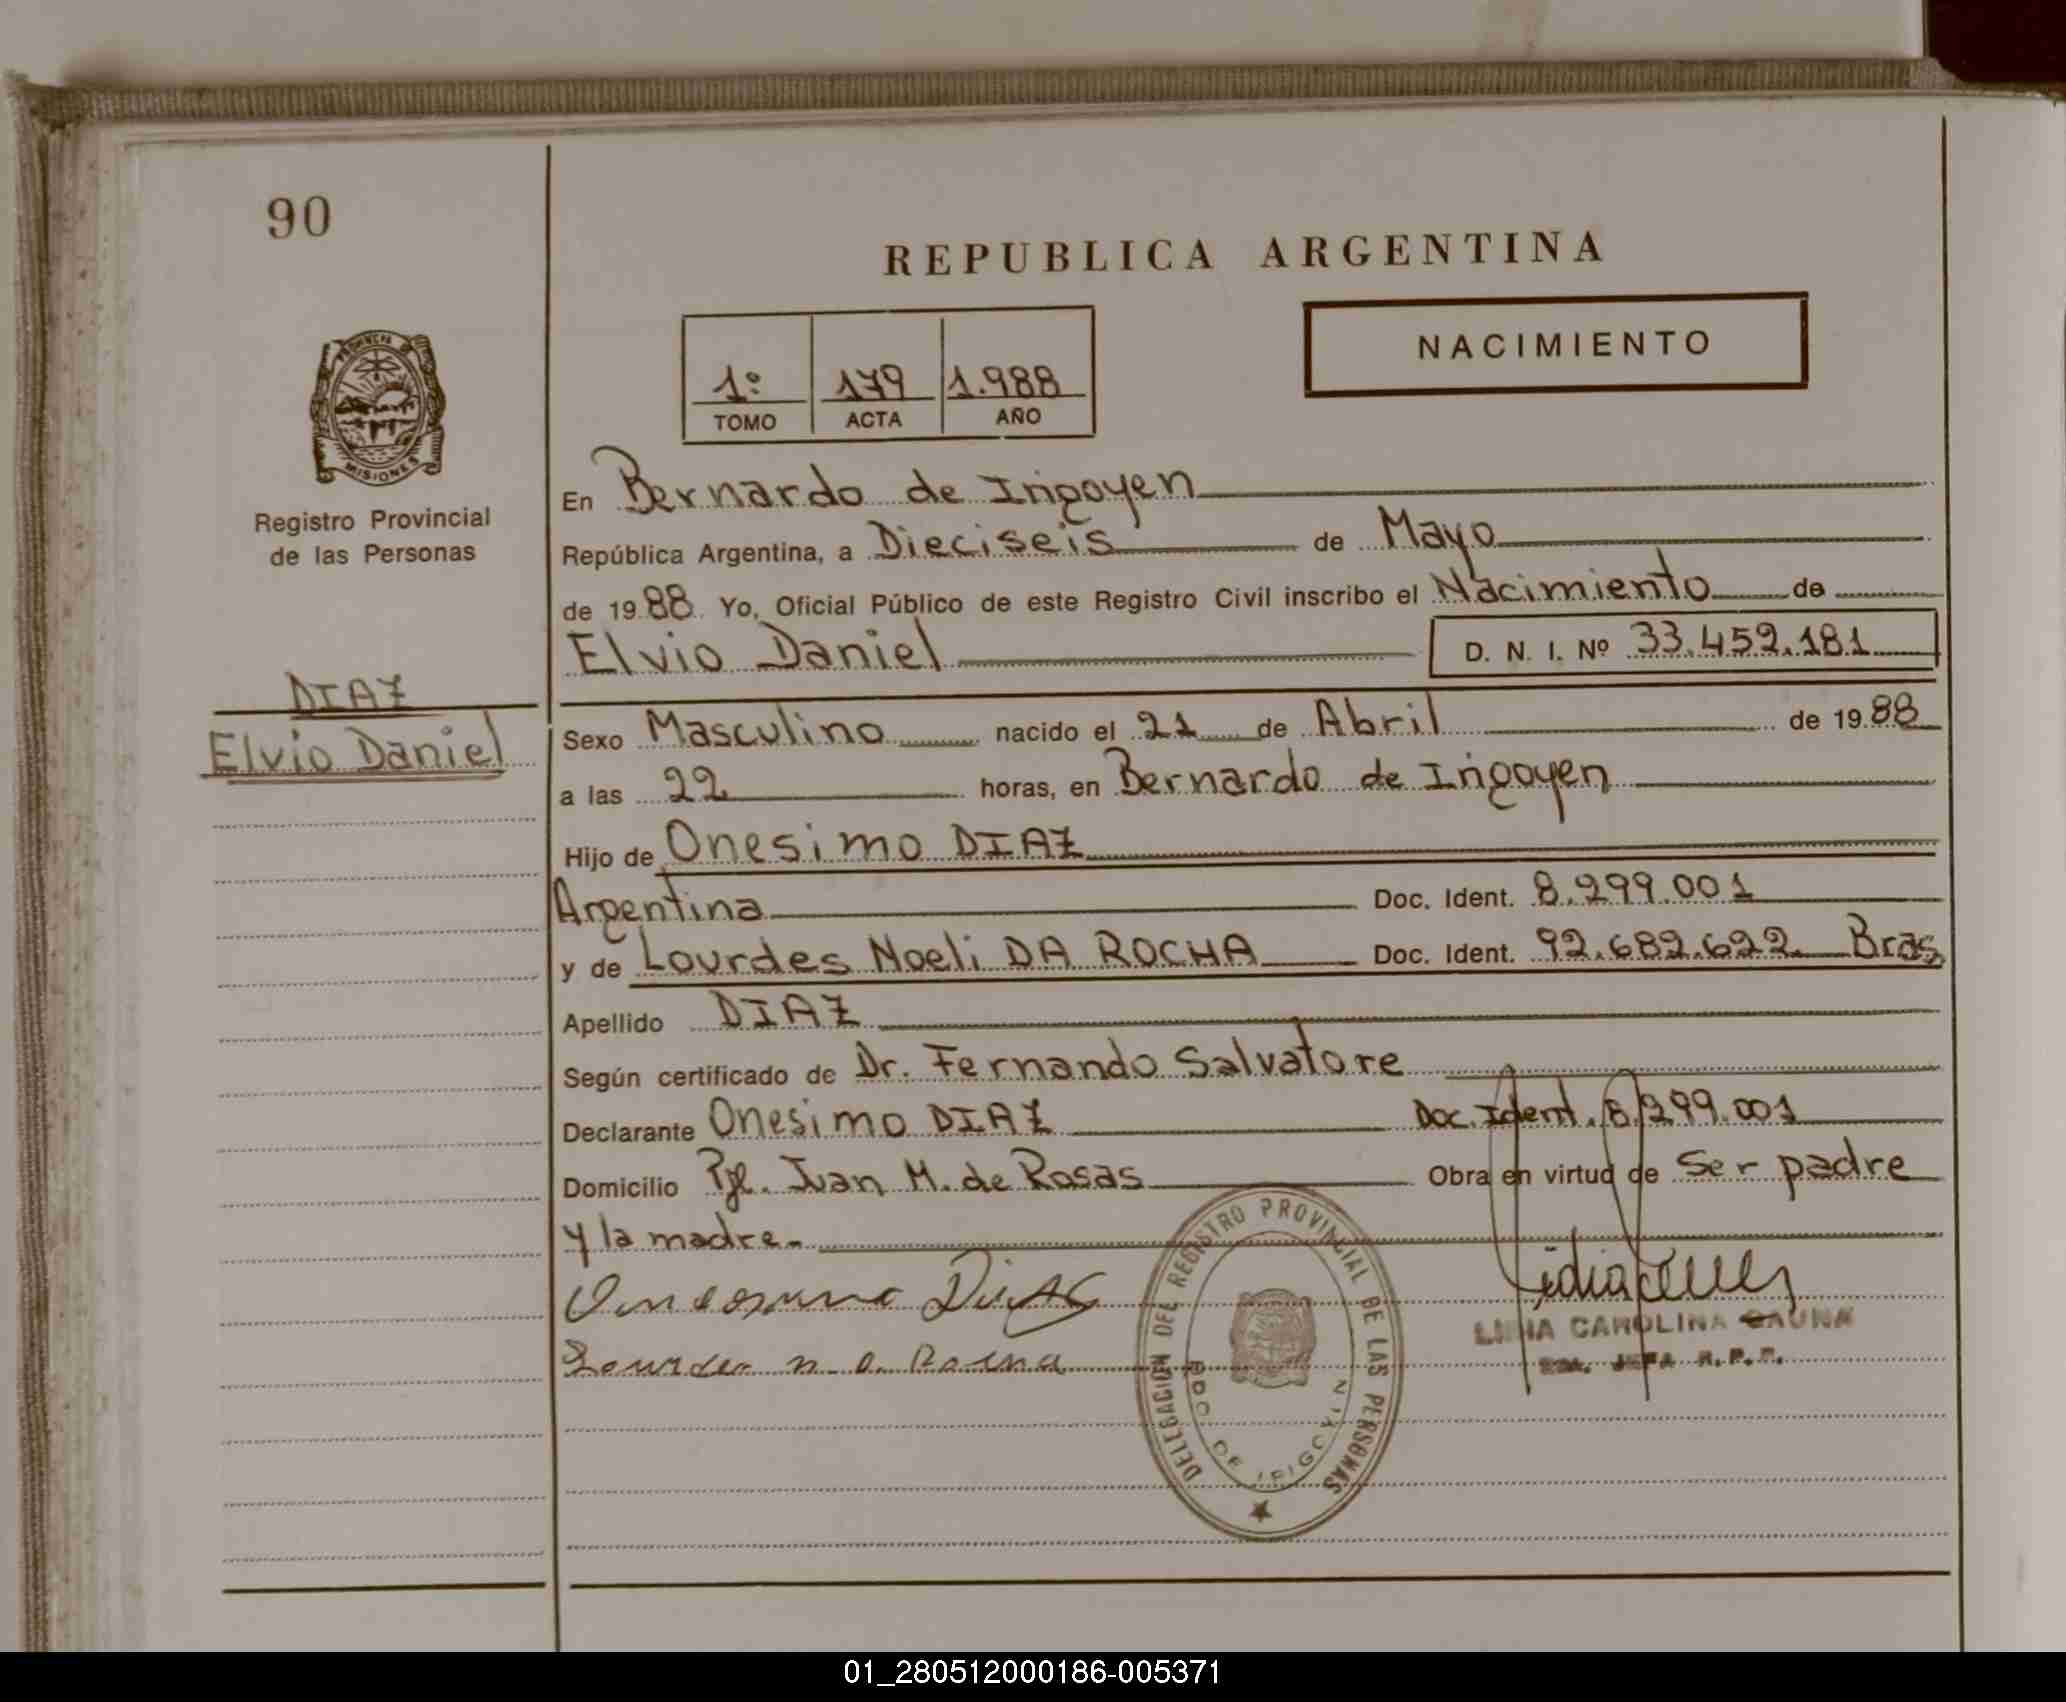 90
REPUBLICA ARGENTINA
NACIMIENTO
1º 179 1.988
TOMO ACTA AÑO
PROVINCIA DE
MISIONES
Registro Provincial
de las Personas
DIAZ
Elvio Daniel
En Bernardo de Irigoyen
República Argentina, a Dieciseis de Mayo
de 1988 Yo, Oficial Público de este Registro Civil inscribo el Nacimiento de
Elvio Daniel D. N. I. Nº 33.452.181
Sexo Masculino nacido el 21 de Abril de 1988
a las 22 horas, en Bernardo de Irigoyen
Hijo de Onesimo DIAZ
Argentina Doc. Ident. 8.299.001
y de Lourdes Noeli DA ROCHA Doc. Ident. 92.682.622 Bras,
Apellido DIAZ
Según certificado de Dr. Fernando Salvatore
Declarante Onesimo DIAZ Doc. Ident. 8.299.001
Domicilio Pje. Juan M. de Rosas Obra en virtud de Ser padre
y la madre.
DELEGACION DEL REGISTRO PROVINCIAL DE LAS PERSONAS
BDO DE IRIGOYEN
CAROLINA GAUNA
JEFA R.P.P.
01_280512000186-005371